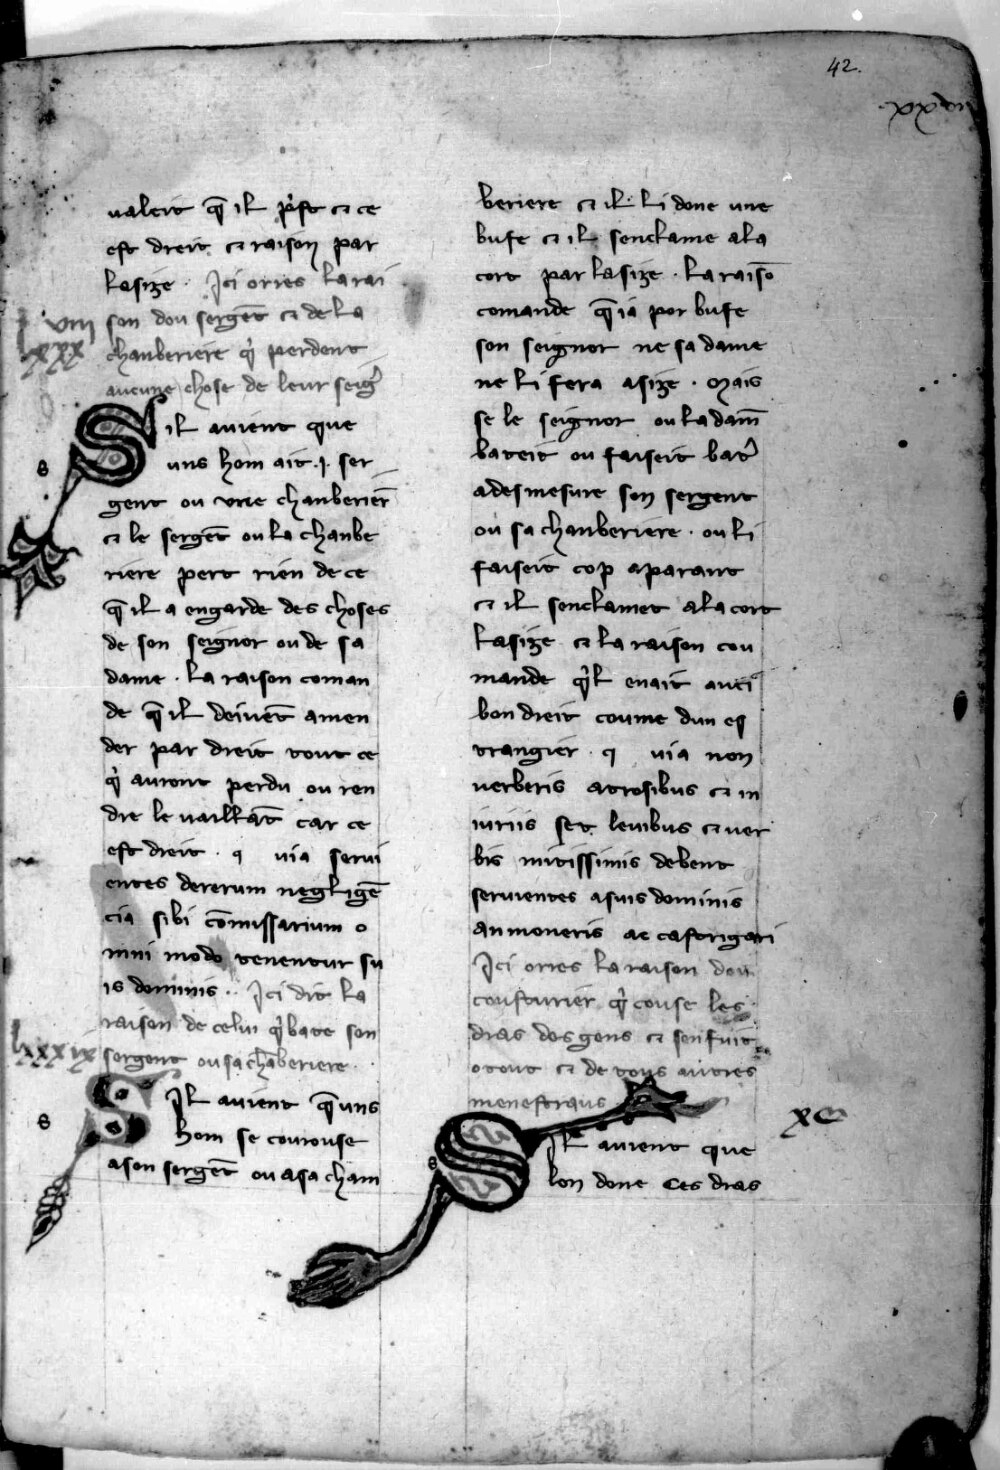 42.
xxxvii
valeit q̃ il p̓st ⁊ ce
est dreit ⁊ raison par
lasize · Ici orres la rai
son dou sergẽt ⁊ de la
chanberiere q̓ perdent
aucune chose de leur seig̓
viii
xxx
S il auient que
s
uns hom ait .j. ser
gent ou vne chanberier̃
⁊ le sergẽt ou la chanbe
riere pert rien de ce
q̃ il a engarde des choses
de son seignor ou de sa
dame · la raison coman
de q̃ il deiuẽt amen
der par dreit tout ce
q̓ auront perdu ou ren
dre le uaillãt car ce
est dreit · q uia serui
entes dererum negligẽ
cia sibi cõmissarium o
mni modo tenentur su
is dominis · Ici dit la
raison de celui q̓ bate son
sergent ou sa chãberiere ·
lxxxix
S Il auient q̃ uns
s
hom se courouse
ason sergẽt ou asa cham
beriere ⁊ il li done vne
bufe ⁊ il senclame ala
cort par lasize · la raisõ
comande q̃ ia por bufe
son seignor ne sa dame
ne li fera asize · Mais
se le seignor ou la dam̃
bateit ou faiseit bat̓
adesmesure son sergent
ou sa chanberiere · ou li
faiseit cop aparant
⁊ il senclamet ala cort
lasize ⁊ la raison cou
mande q̓l enait auci
bon dreit coume dun es
trangier · q uia non
uerberis atrosibus ⁊ in
iuriis set leuibus ⁊ uer
bis mitissimis debent
seruientes asuis dominis
anmoneris ac castrigari
Ici orres la raison dou
cousturier q̓ couse les
dras des gens ⁊ senfuit
otout ⁊ de tous autres
menestraus
xc
S Il auient que
s
lon done ces dras